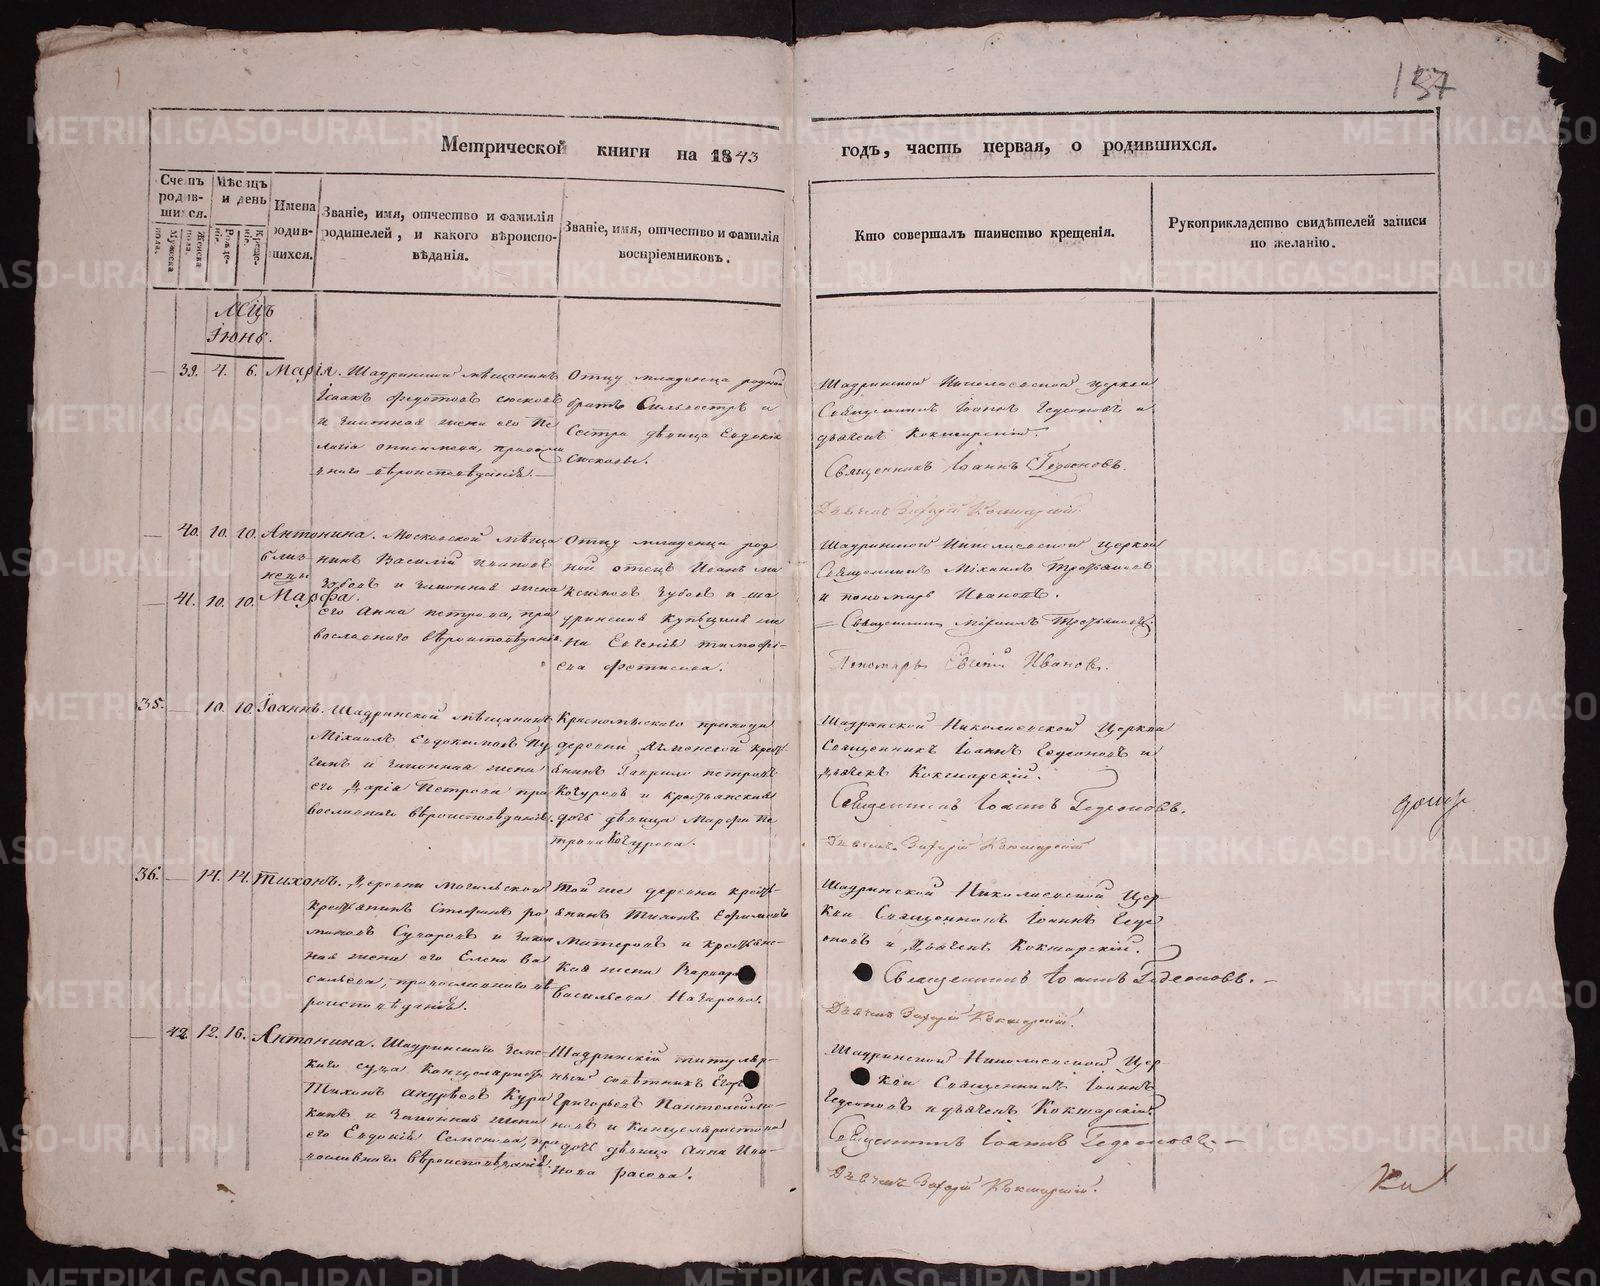 137
Метрической книги на 1843
годъ, часть первая, о родившихся.
Счетъ родившихся.
Мужеска пола.
Женска пола.
Мѣсяцъ и день
Рожденіе.
Крещеніе.
Имена родившихся.
Званіе, имя, отчество и фамилія
родителей, и какого вѣроиспо-
вѣданія.
Званіе, имя, отчество и фамилія
воспріемниковъ.
Кто совершалъ таинство крещенія.
Рукоприкладство свидѣтелей записи
по желанію.
Мсцъ
Іюнь.
39. 4. 6. Марія.
Шадринской мѣщанинъ
Ісаакъ Федотовъ
и законная жена его Пе
лагія православ
наго вѣроисповѣданія.
Отцу младенца родной
братъ Сильвестръ и
Сестра дѣвица Евдокія
Шадринской Николаевской церкви
Священникъ Іоаннъ Гедеоновъ и
дьячекъ Кокшарскій.
Священникъ Іоаннъ Гедеоновъ.
Дьячекъ Кокшарскій
40. 10. 10. Антонина.
близ-
нецы
41. 10. 10. Марфа.
Московской мѣща
нинъ Василій Ивановъ
Зубовъ и законная жена
его Анна Петрова, пра
вославнаго вѣроисповѣданія.
Отцу младенца род
ной отецъ Иванъ Ма
ксимовъ Зубовъ и ша
дринская Купецкая же
на Евгенія Тимофѣ-
ева Фетисова.
Шадринской Николаевской церкви
Священникъ Михаилъ Третьяковъ
и пономарь Ивановъ.
Священникъ Михаилъ Третьяковъ.
Пономарь Евгеній Ивановъ.
35. 10. 10. Іоаннъ.
Шадринской мѣщанинъ
Михаилъ Евдокимовъ Пу
гинъ и законная жена
его Дарія Петрова пра
вославнаго вѣроисповѣданія.
Красномыскаго прихода
деревни кресть
янинъ Гаврило Петровъ
Кочуровъ и крестьянская
дочь дѣвица Марфа Пе
трова Кочурова.
Шадринской Николаевской Церкви
Священникъ Іоаннъ Гедеоновъ и
дьячекъ Кокшарскій.
Священникъ Іоаннъ Гедеоновъ.
Дьячекъ Кокшарскій
36. 14. 14. Тихонъ.
Деревни Могильской
крестьянинъ Стефанъ Ро
мановъ Сухаровъ и закон
ная жена его Елена Ва
сильева, православнаго вѣ
роисповѣданія.
Той же деревни кресть-
янинъ Тихонъ Ефимовъ
и крестьянс-
кая жена Варвара
Васильева Назарова.
Шадринской Николаевской Цер-
кви Священникъ Іоаннъ Геде
оновъ и Дьячекъ Кокшарскій.
Священникъ Іоаннъ Гедеоновъ.
Дьячекъ Кокшарскій.
42. 12. 16. Антонина.
Шадринскаго Земс-
каго суда Канцеляристъ
Тихонъ Андреевъ Кура
кинъ и законная жена
его Евдокія Семенова, пра
вославнаго вѣроисповѣданія.
Шадринскій титуляр-
ный совѣтникъ Егоръ
Григорьевъ Пантелеймо-
новъ и Канцеляристова
дочь дѣвица Анна Ива-
нова
Шадринской Николаевской Цер-
кви Священникъ Іоаннъ
Гедеоновъ и дьячекъ Кокшарскій.
Священникъ Іоаннъ Гедеоновъ.
Дьячекъ Кокшарскій.
METRIKI.GASO-URAL.RU